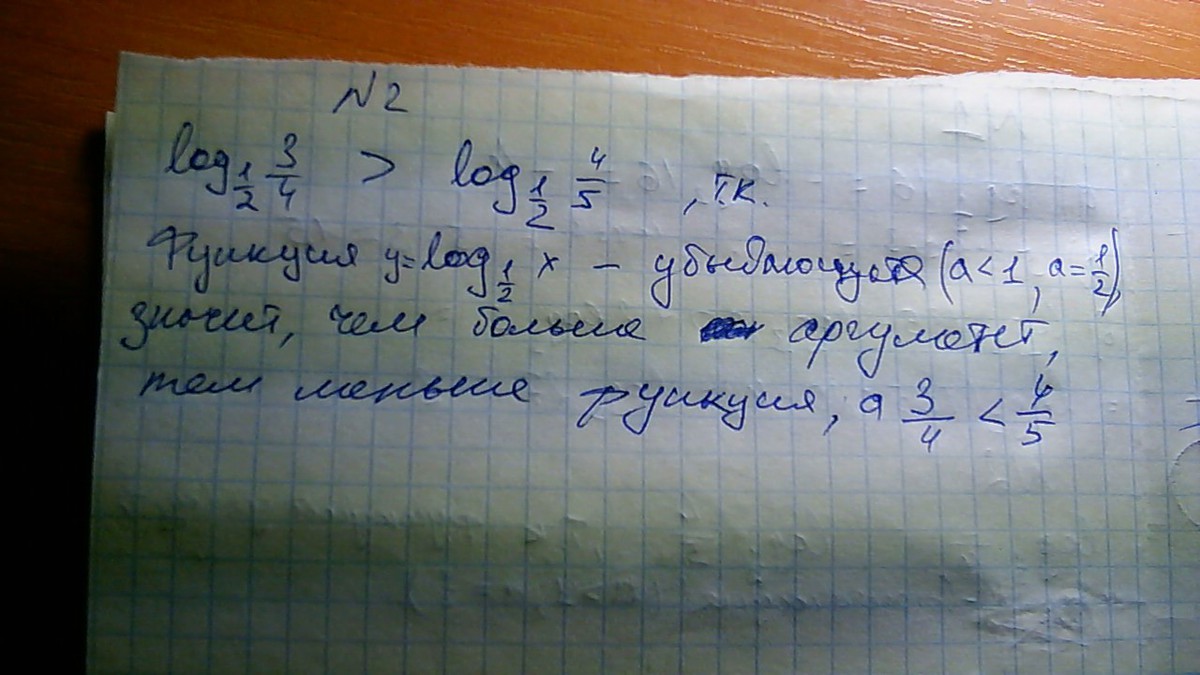 N2
log_{1/2} 3/4 > log_{1/2} 4/5, т.к.
Функция y=log_{1/2} x – убывающая (a<1, a=1/2),
значит, чем больше аргумент,
тем меньше функция, а 3/4 < 4/5